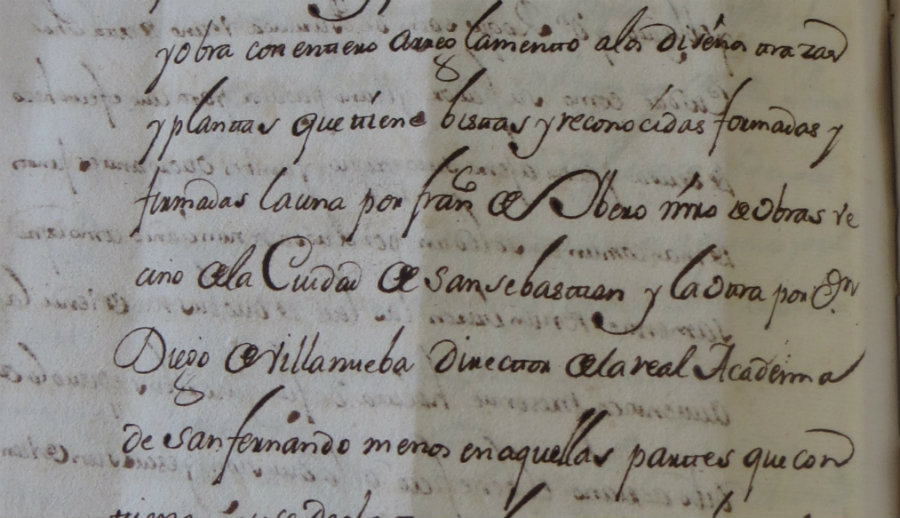 y obra con entero arreglamento a los diseños trazas
y plantas que tiene bistas y reconocidas formadas y
firmadas la una por fran de Ibero mro de obras ve
cino de la Ciudad de san sebastian y la otra por Dn
Diego de Villanueba director de la real Academia
de san fernando menos en aquellas partes que con